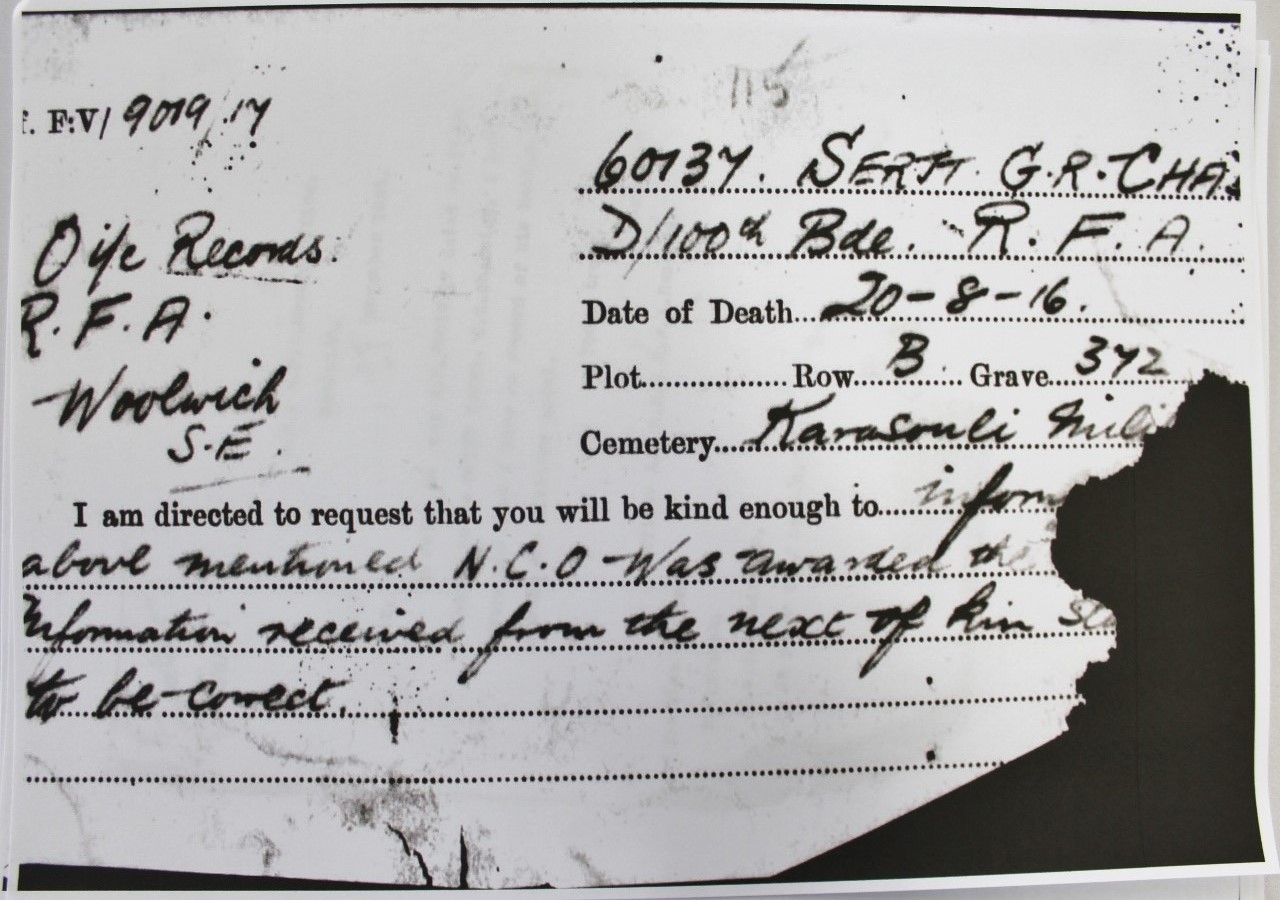 115
F:V/ 9019/17
60137. SERJT. G.R. CHAS
D/100th Bde. R. F. A.
O i/c Records.
R. F. A.
Woolwich
S.E.
Date of Death 20-8-16.
Plot Row B Grave 372
Cemetery Karasouli Mili
I am directed to request that you will be kind enough to inform
above mentioned N.C.O Was awarded the
Information received from the next of kin
to be correct.